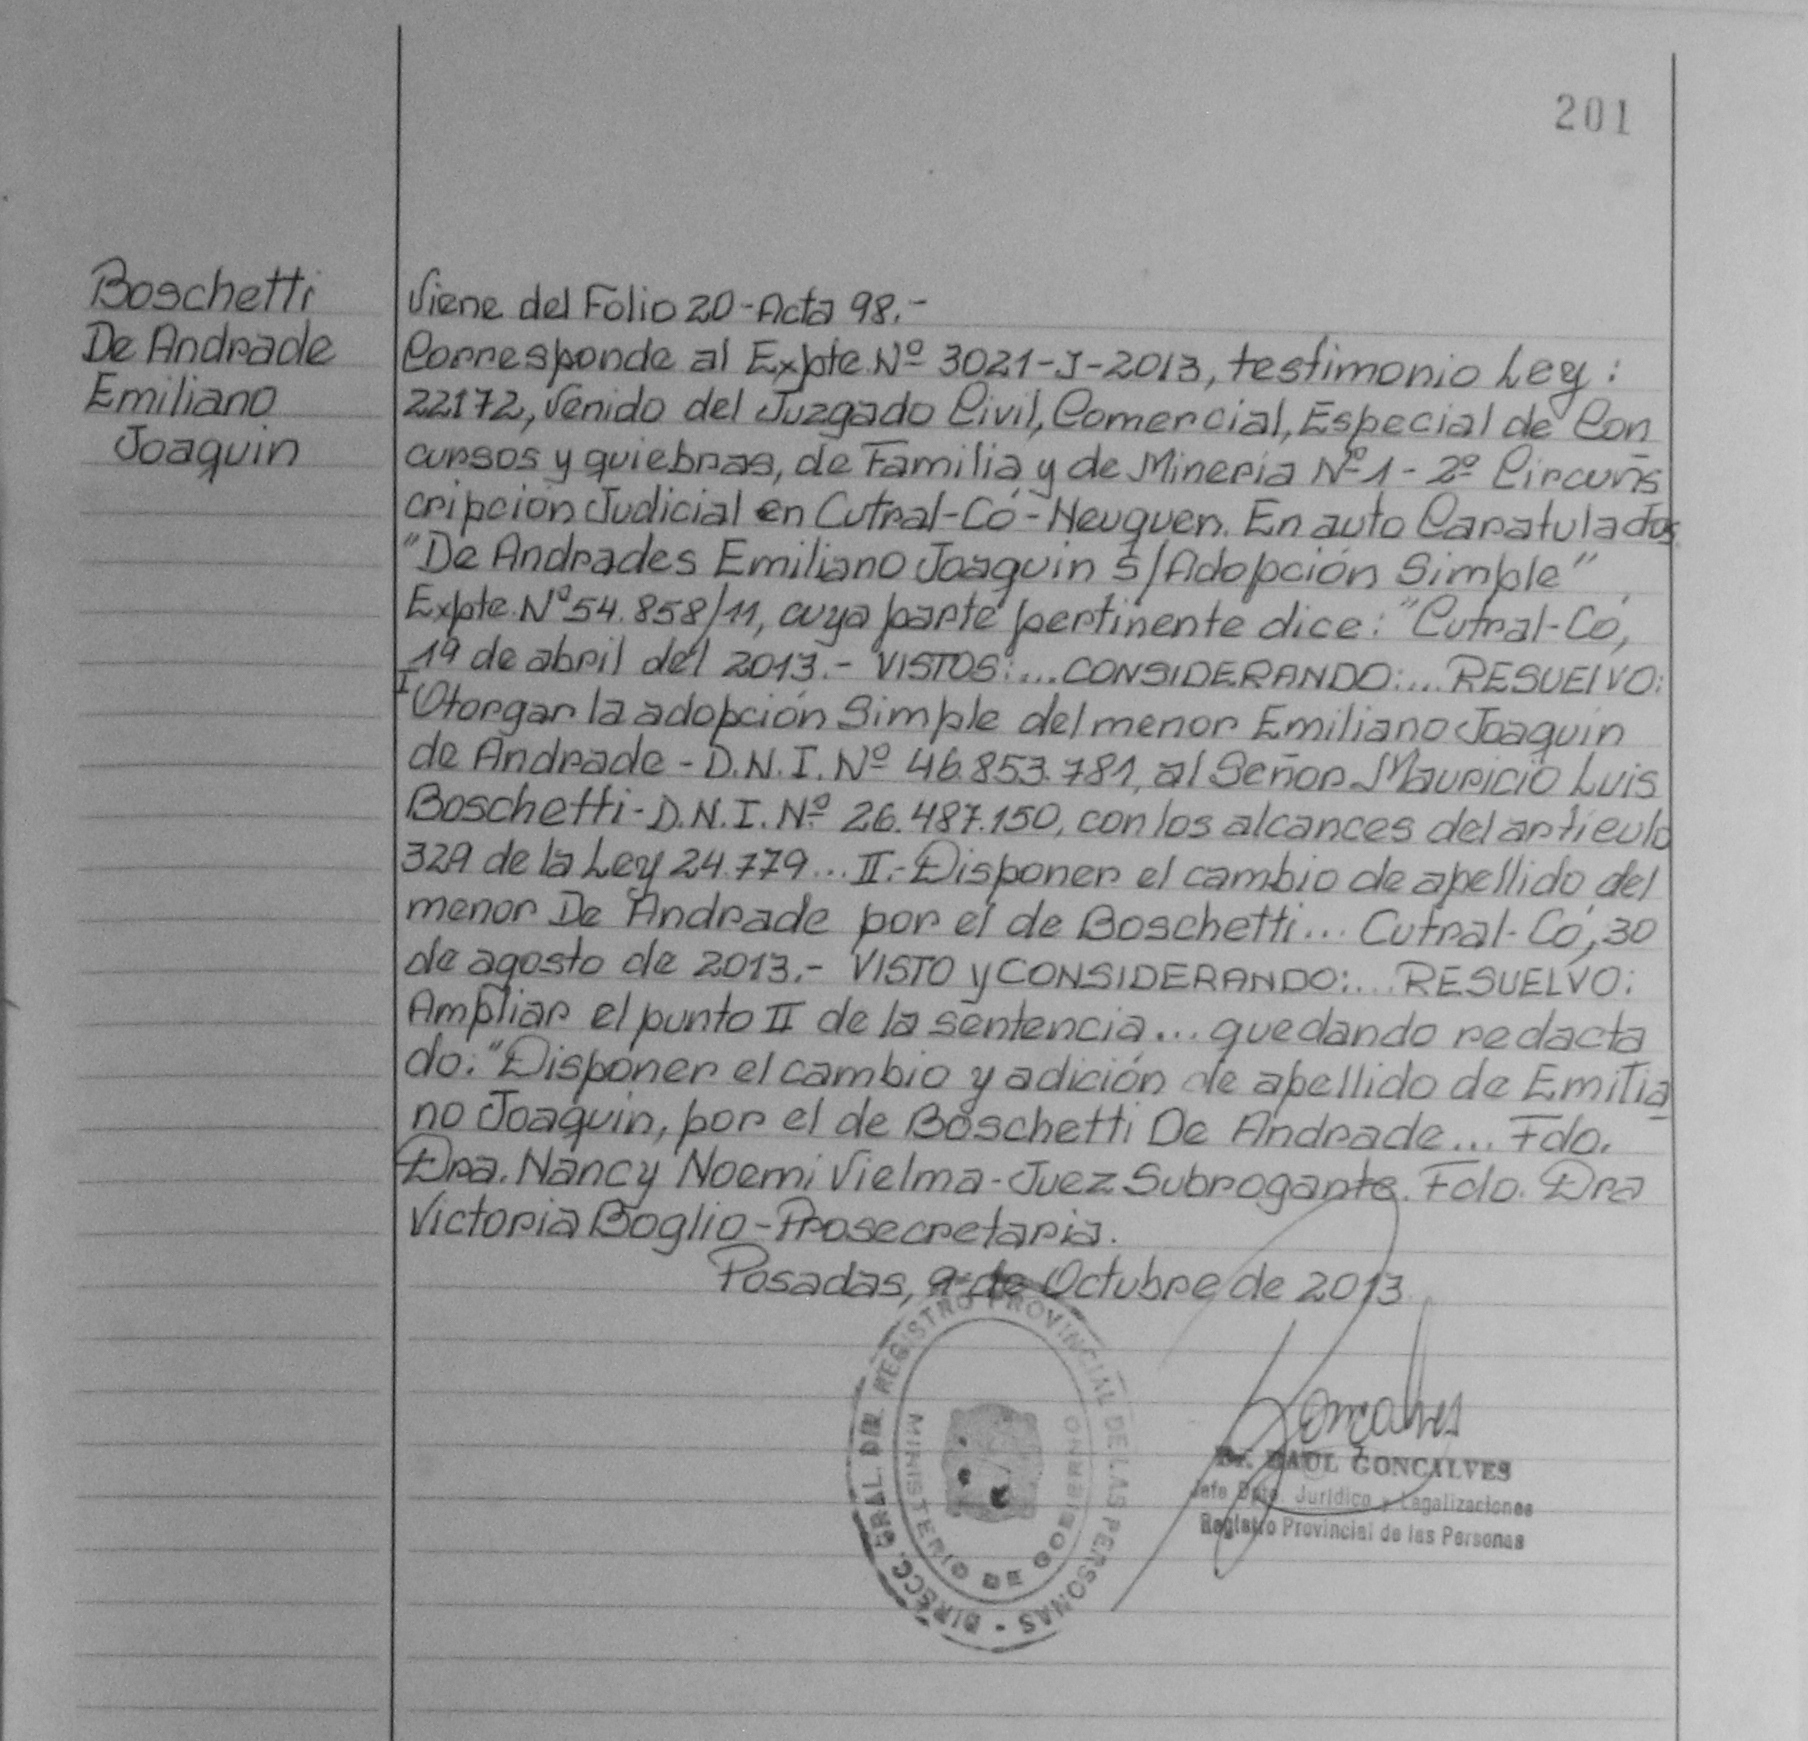 201
Boschetti
De Andrade
Emiliano
Joaquin
Viene del Folio 20-Acta 98.-
Corresponde al Expte. Nº 3021-J-2013, testimonio Ley:
22172, venido del Juzgado Civil, Comercial, Especial de Con
cursos y quiebras, de Familia y de Minería Nº 1 - 2º Circuns
cripción Judicial en Cutral-Có-Neuquen. En auto Caratulados
"De Andrades Emiliano Joaquin S/Adopción Simple"
Expte. Nº 54.858/11, cuya parte pertinente dice: "Cutral-Có,
19 de abril del 2013.- VISTOS:... CONSIDERANDO:... RESUELVO:
I Otorgar la adopción Simple del menor Emiliano Joaquin
de Andrade - D.N.I. Nº 46.853.781, al Señor Mauricio Luis
Boschetti - D.N.I. Nº 26.487.150, con los alcances del artículo
329 de la Ley 24.779... II.- Disponer el cambio de apellido del
menor De Andrade por el de Boschetti... Cutral-Có, 30
de agosto de 2013.- VISTO y CONSIDERANDO:... RESUELVO:
Ampliar el punto II de la sentencia... quedando redacta
do: "Disponer el cambio y adición de apellido de Emilia
no Joaquin, por el de Boschetti De Andrade... Fdo.
Dra. Nancy Noemi Vielma - Juez Subrogante. Fdo. Dra
Victoria Boglio - Prosecretaria.
Posadas, 9 de Octubre de 2013
DIRECC. GRAL. DEL REGISTRO PROVINCIAL DE LAS PERSONAS -
MINISTERIO DE GOBIERNO
Goncalves
Dr. RAUL GONCALVES
Jefe Dpto. Jurídico y Legalizaciones
Registro Provincial de las Personas